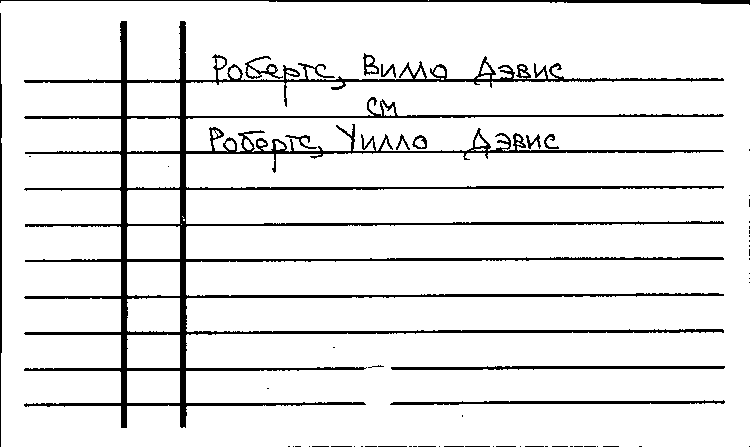 Робертс, Вилло Дэвис
см
Робертс, Уилло Дэвис